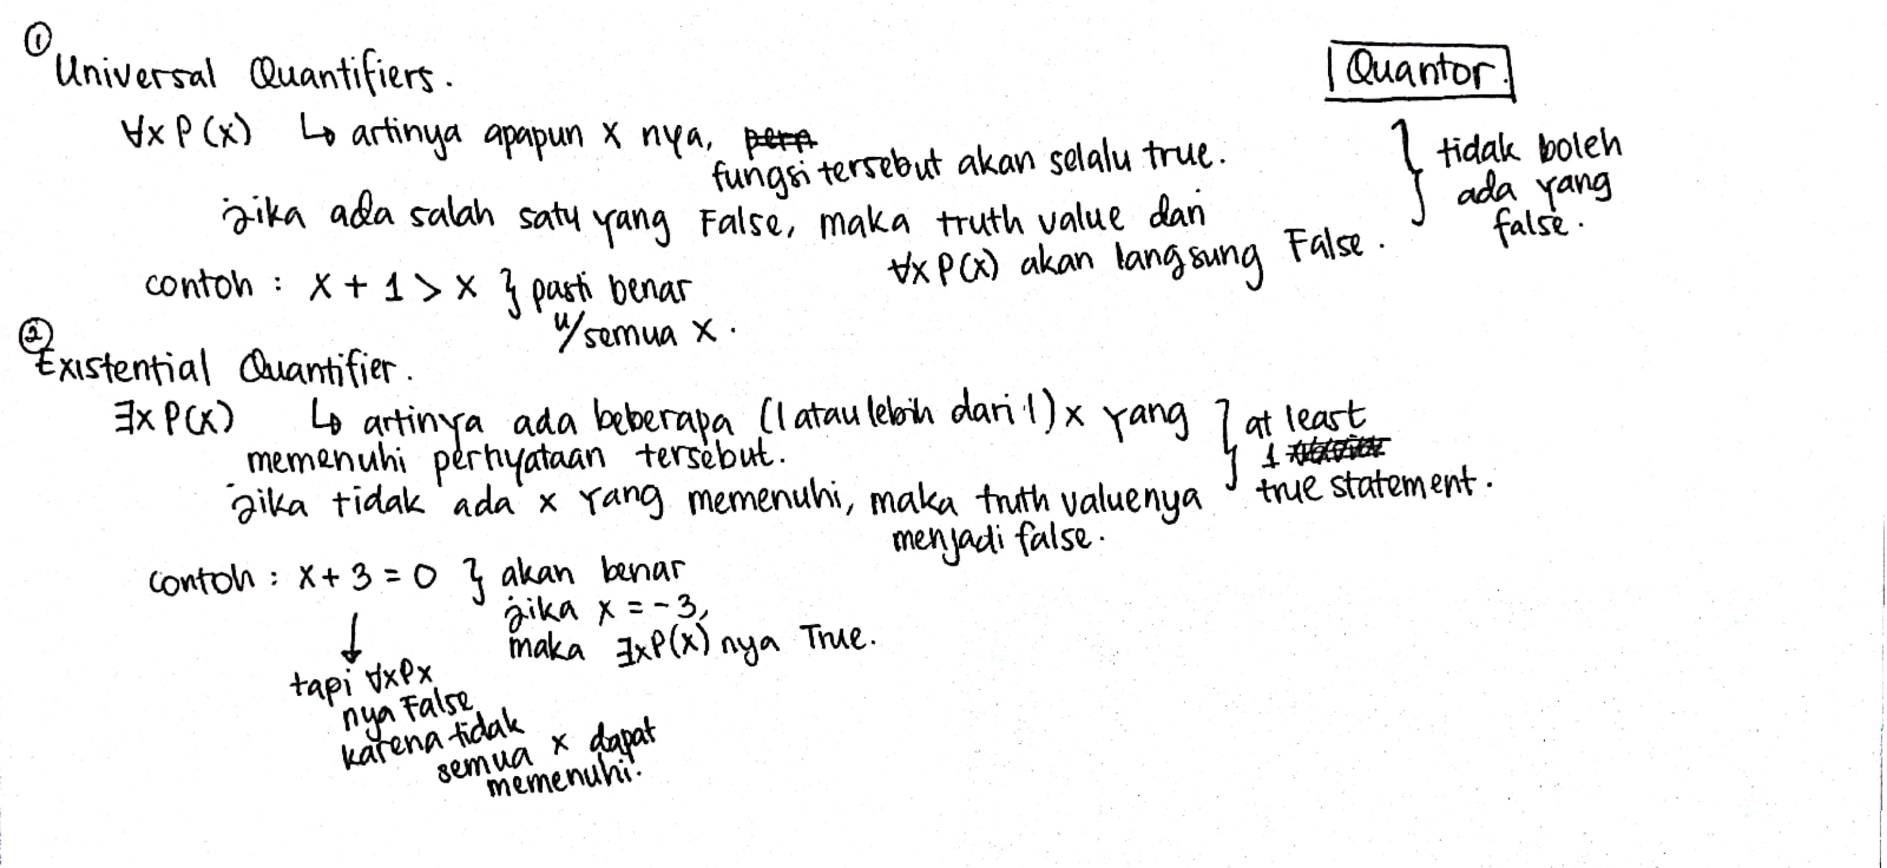 ①
Universal Quantifiers.
Quantor.
∀x P(x) ↳ artinya apapun x nya,
fungsi tersebut akan selalu true.
jika ada salah satu yang False, maka truth value dari
∀x P(x) akan langsung False.
} tidak boleh
ada yang
false.
contoh : x + 1 > x } pasti benar
u/semua x.
②
Existential Quantifier.
∃x P(x) ↳ artinya ada beberapa (1 atau lebih dari 1) x yang
memenuhi pernyataan tersebut.
jika tidak ada x yang memenuhi, maka truth valuenya
menjadi false.
} at least
1
true statement.
contoh : x + 3 = 0 } akan benar
jika x = -3,
maka ∃xP(x) nya True.
↓
tapi ∀xPx
nya False
karena tidak
semua x dapat
memenuhi.